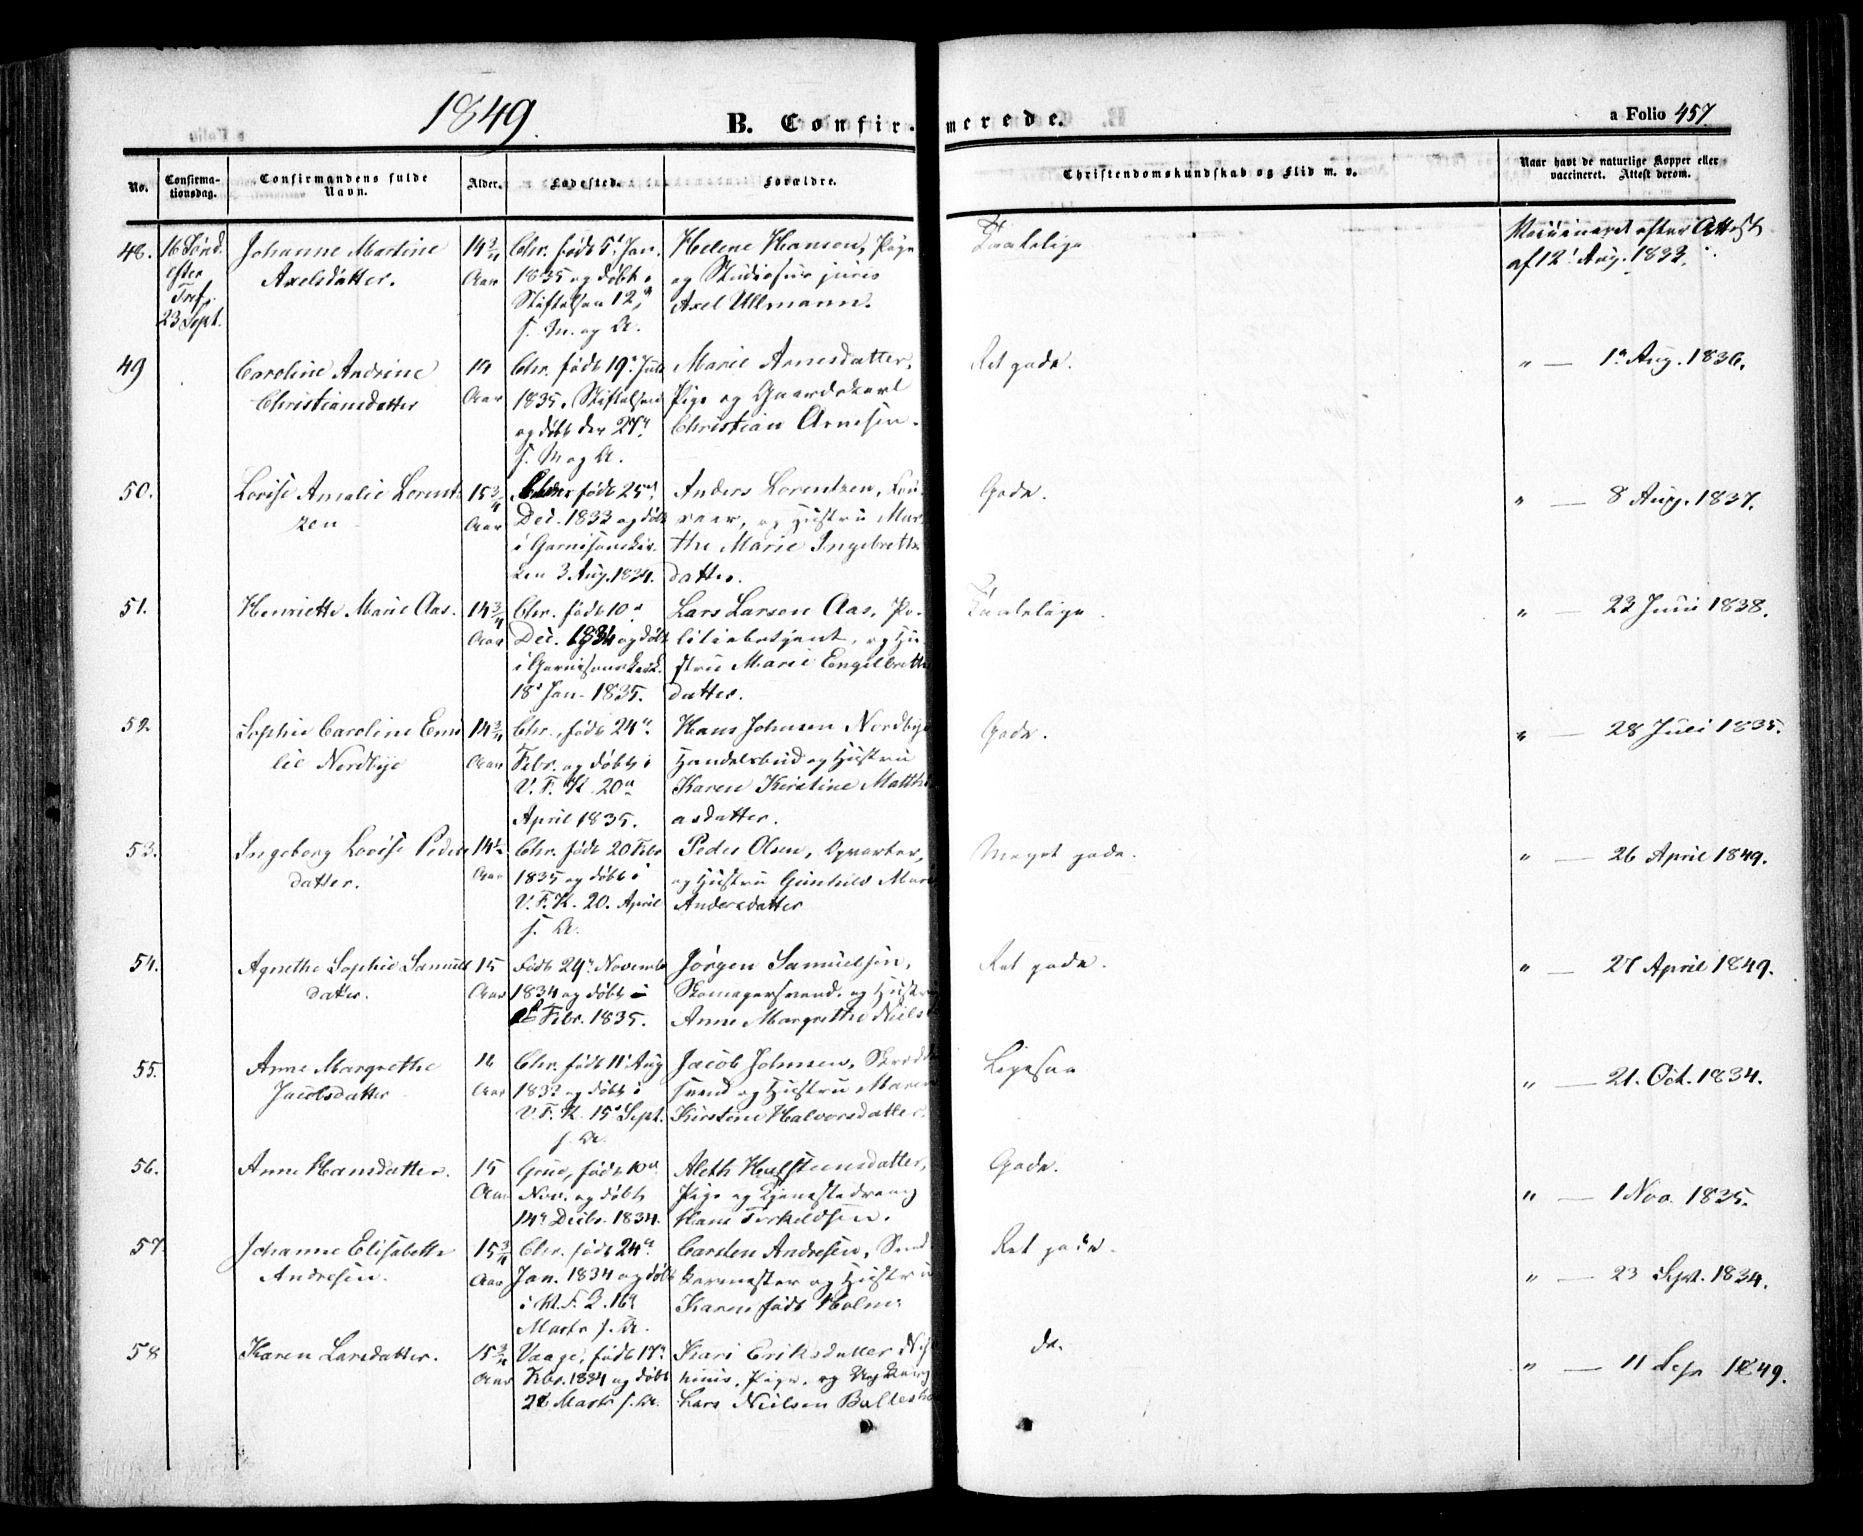 1849.
B. Confirmerede.
a Folio 457
No.
Confirma-
tionsdag.
Confirmandens fulde
Navn.
Alder.
Fødested.
Forældre.
Christendomskundskab og Flid m. v.
Naar havt de naturlige Kopper eller
vaccineret. Attest derom.
48.
16 Sønd.
efter
Tref.
23 Sept.
Johanne Martine
Axelsdatter.
14 3/4
Aar
Chr. født 5t Jan.
1835 og døbt i
Stiftelsen 12
s. M. og A.
Helene Hansen, Pige
og Studiosus juris
Axel Ullmann.
Taalelige
Vaccineret efter Attest
af 12t Aug. 1833.
49
Caroline Andrine
Christiansdatter
14
Aar
Chr. født 19 Juli
1835. Stiftelsen
og døbt den 27
s. M og A.
Marie Arnesdatter,
Pige og Gaardskarl
Christian Arnesen.
Ret gode.
" — 1 Aug. 1836.
50.
Lovise Amalie Lorent-
zen
15 3/4
Aar
født 25
Dec. 1833 og døbt
i Garnisonskir-
ken 3 Aug. 1834.
Anders Lorentzen,
og Hustru Mar-
the Marie Ingebrets-
datter.
Gode.
" — 8 Aug. 1837.
51.
Henriette Marie Aas.
14 3/4
Aar
Chr. født 10
Dec. 1834 og døbt
i Garnisonskirk.
18 Jan. 1835.
Lars Larsen Aas, Po-
litiebetjent, og Hu-
stru Marie Engelbretts-
datter.
Taalelige.
" — 22 Juni 1838.
52.
Sophie Caroline Emi
lie Nordbye
14 3/4
Aar
Chr., født 24
Febr. og døbt i
V. F. K. 20
April 1835.
Hans Johnsen Nordbye
Handelsbud og Hustru
Karen Kirstine Matthi
asdatter.
Gode.
" — 28 Juli 1835.
53.
Ingeborg Lovise Peders
datter.
14 1/2
Aar
Chr. født 20 Febr
1835 og døbt i
V. F. K. 20. April
s. A.
Peder Olsen,
og Hustru Gunhild Marie
Andersdatter
Meget gode.
" — 26 April 1849.
54.
Agnethe Sophie Samuels
datter.
15
Aar
Født 29 Novembr
1834 og døbt
Febr. 1835.
Jørgen Samuelsen,
Skomagersvend, og Hustru
Anne Margrethe Niels
Ret gode.
" — 27 April 1849.
55.
Anne Margrethe
Jacobsdatter
16
Aar
Chr. født 11 Aug
1833 og døbt i
V. F. K. 15 Sept.
s. A.
Jacob Johnsen, Skrædder
svend og Hustru Maren
Kirstine Halvorsdatter.
Ligesaa
" — 21. Oct. 1834.
56.
Anne Hansdatter.
15
Aar
Grue, født 10
Nov. og døbt
14 Decbr. 1834.
Aleth Halfsteensdatter,
Pige og Tjenestedreng
Hans Terkeldsen.
Gode.
" — 1 Nov. 1835.
57
Johanne Elisabeth
Andresen.
15 3/4
Aar
Chr. født 24
Jan. 1834 og døbt
i 16
Marts s. A.
Carsten Andresen,
og Hustru
Karen født Holm.
Ret gode.
" — 23 Sept. 1834.
58
Karen Larsdatter.
15 3/4
Aar
Vaage, født 17
Febr. 1834 og døbt
Marts s. A.
Kari Eriksdatter
Pige, og
Lars Nielsen
do.
" — 11 Sep 1849.